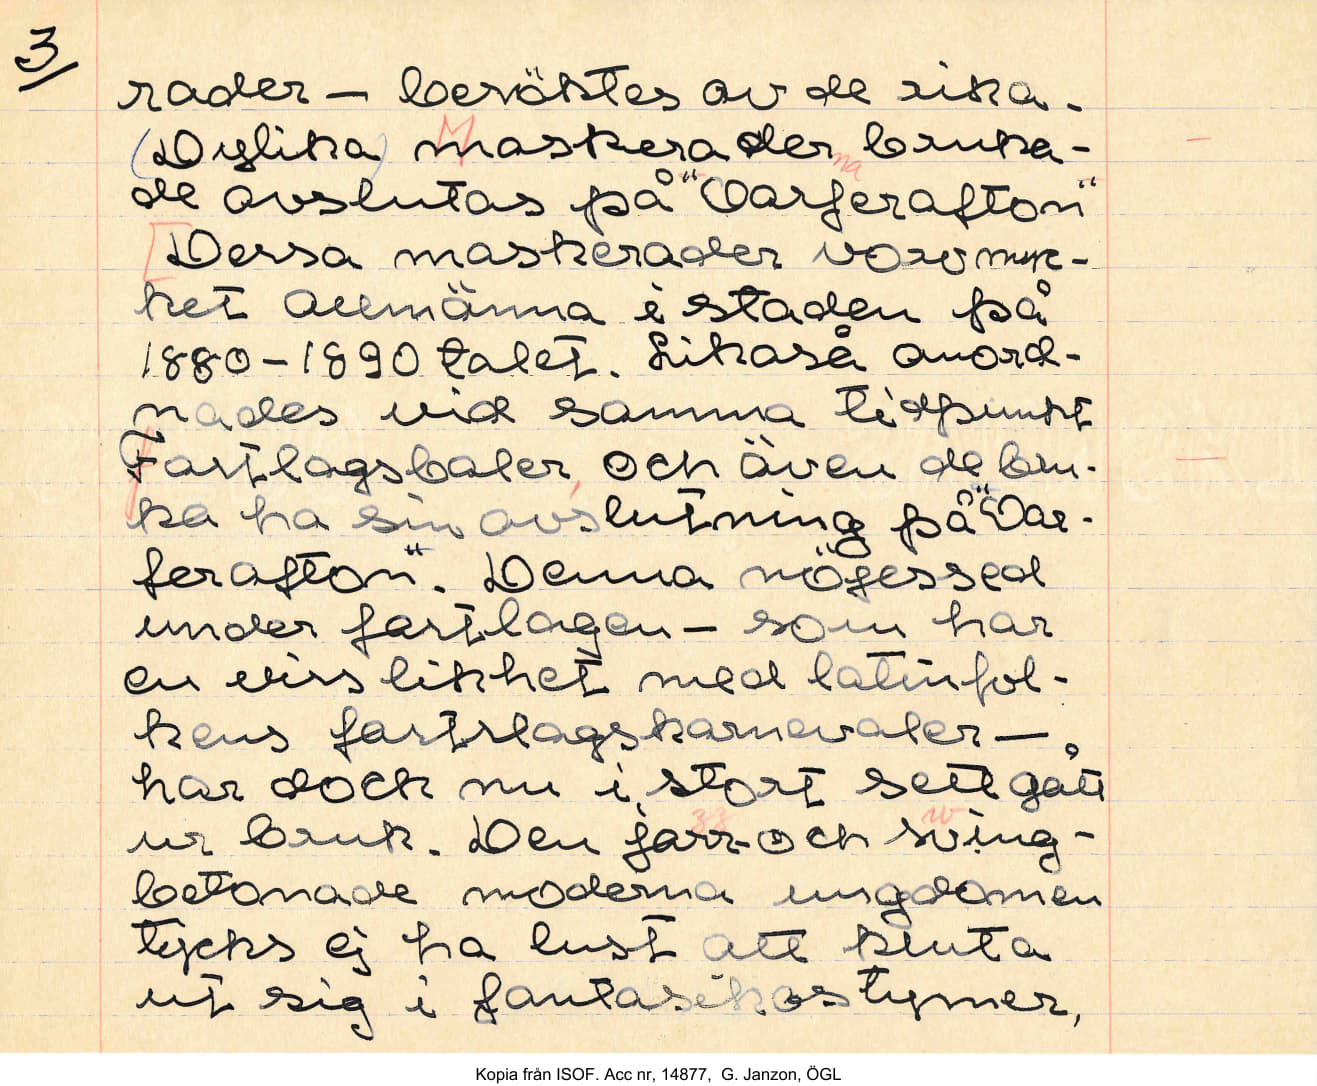 3
rader – besöktes av de rika.
(Dylika) maskerader bruka-
de avslutas på "Varferafton"
Dessa maskerader voro myc-
ket allmänna i staden på
1880–1890 talet. Likaså anord-
nades vid samma tidpunkt
Fastlagsbaler, och även de bru-
ka ha sin avslutning på "Var-
ferafton". Denna nöjessed
under fastlagen – som har
en viss likhet med latinfol-
kens fastslagskarnevaler –,
har dock nu i stort sett gått
ur bruk. Den jazz- och swing-
betonade moderna ungdomen
tycks ej ha lust att kluta
ut sig i fantasikostymer,
Kopia från ISOF. Acc nr, 14877, G. Janzon, ÖGL